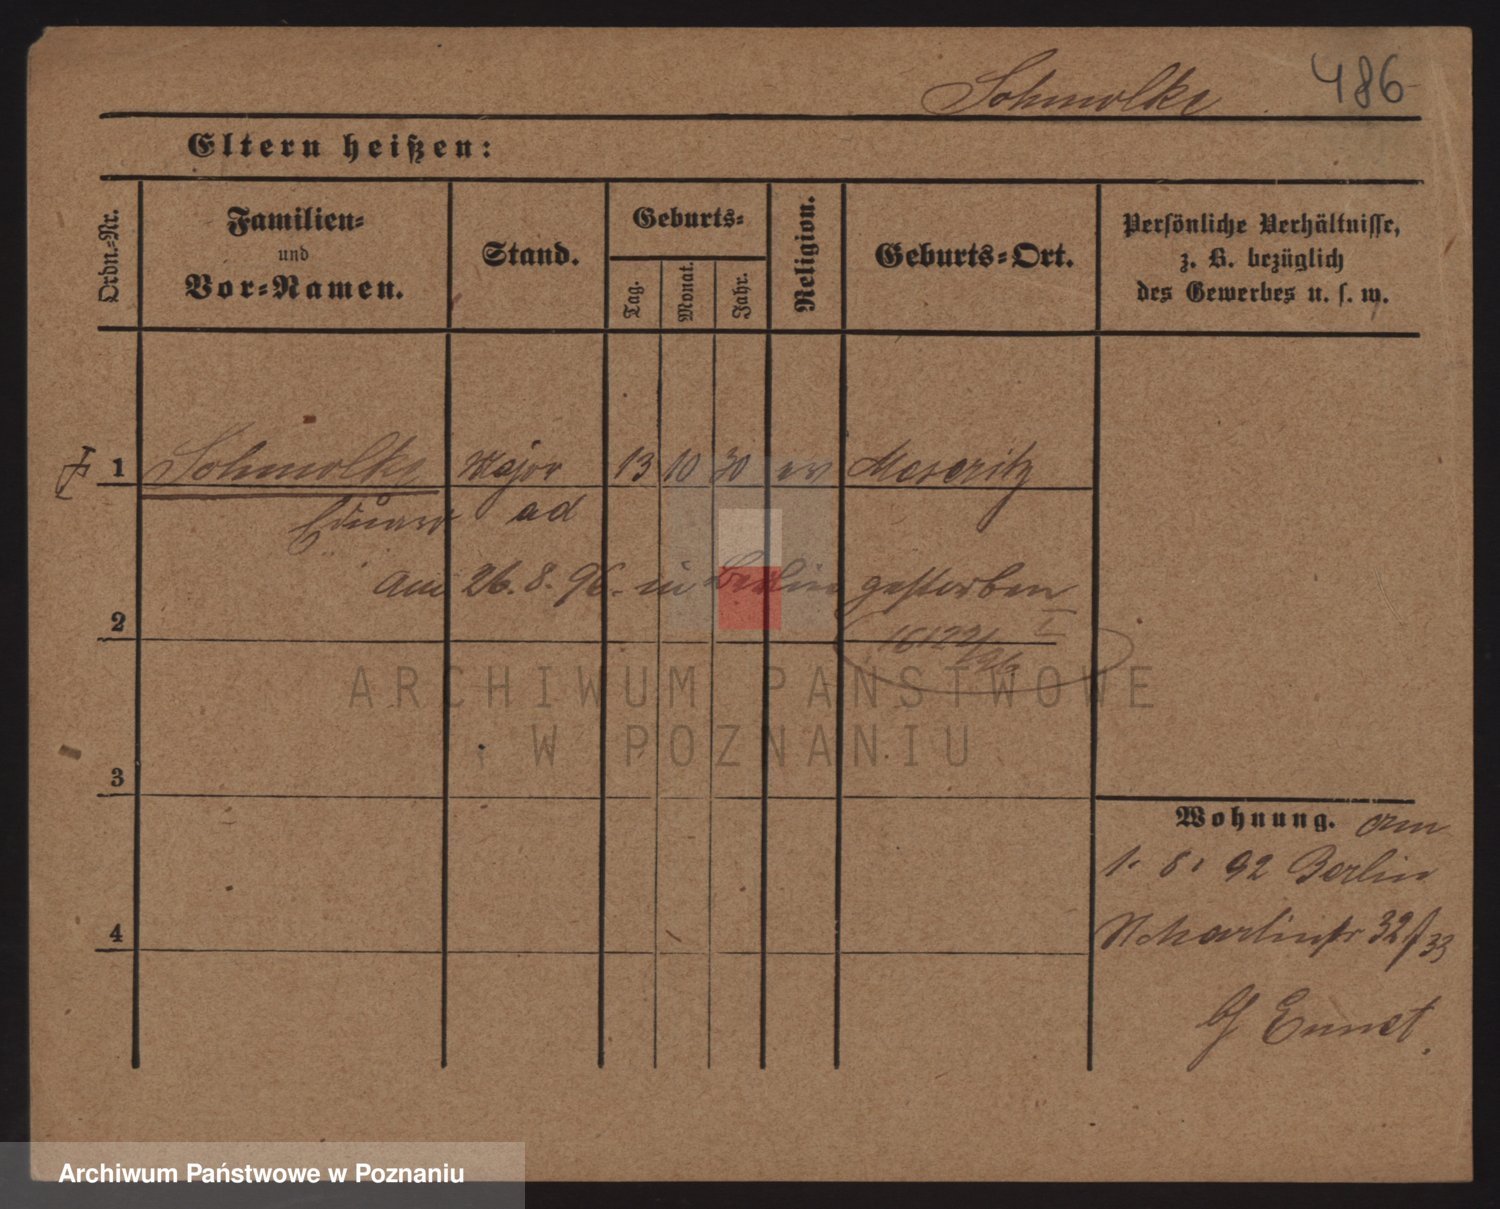 Schmolke 486
Eltern heißen:
Ordn.-Nr.
Familien-
und
Vor-Namen.
Stand.
Geburts-
Tag.
Monat.
Jahr.
Religion.
Geburts-Ort.
Persönliche Verhältnisse,
z. B. bezüglich
des Gewerbes u. s. w.
1 Schmolke Major 13 10 30 ev Meseritz
Eduard ad
am 26.8.96. in Berlin gestorben
2
ARCHIWUM PAŃSTWOWE
W POZNANIU
3
Wohnung. am
1. 8. 92 Berlin
4
32/33
Archiwum Państwowe w Poznaniu